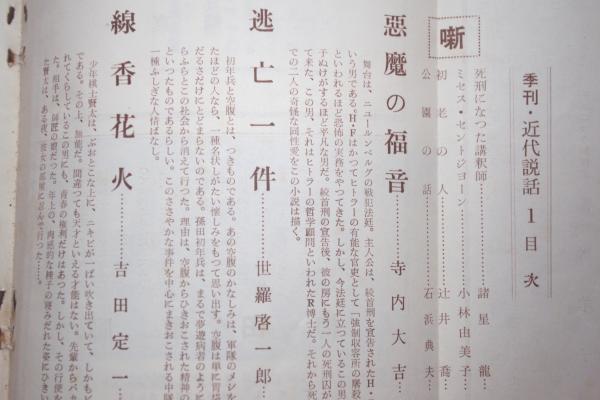 季刊・近代説話 1 目次
噺
死刑になつた講釈師……諸星龍
ミセス・セントジョーン……小林由美子
初老の人……辻井喬
公園の話……石浜典夫
惡魔の福音……寺内大吉
舞台は、ニュールンベルグの戦犯法廷。主人公は、絞首刑を宣告されたH・
いう男である。H・Fはかつてヒトラーの有能な官吏として「強制収容所の屠殺
といわれるほど恐怖の実務をやつてきた。しかし、今法廷に立つているこの男
子ぬけがするほど平凡な男だ。絞首刑の宣告後、彼の房にもう一人の死刑囚が
て来た。この男、それはヒトラーの哲学顧問といわれたR博士だ。それから死
での二人の奇怪な同性愛をこの小説は描く。
逃亡一件……世羅啓一郎
初年兵と空腹とは、つきものである。あの空腹のかなしみは、軍隊のメシを
たほどの人なら、一種名状しがたい懐しみをもつて思い出す。空腹は単に胃袋
だるさだけにとどまらないのである。孫田初年兵は、まるで夢遊病者のように
らふらとこの社会から消えて行つた。理由は、空腹からひきおこされた精神の
といつたものであるらしい。このささやかな事件を中心にまきおこされる中隊
一種ふしぎな人情ばなし。
線香花火……吉田定一
少年棋士賢太は、ぶおとこな上に、ニキビが一ぱい吹き出ていて、しかもビ
である。その上、無能だ。間違つても天才といえる才能はない。先輩からバカ
れてくらしているこの男にも、青春の権利だけはあつた。しかし、その行使を
た。相手は、師匠の娘だつた。年上の、肉感的な桂子の寝みだれた姿にひきい
と賢太は、ある夜、彼女の部屋に忍んで行つた……。